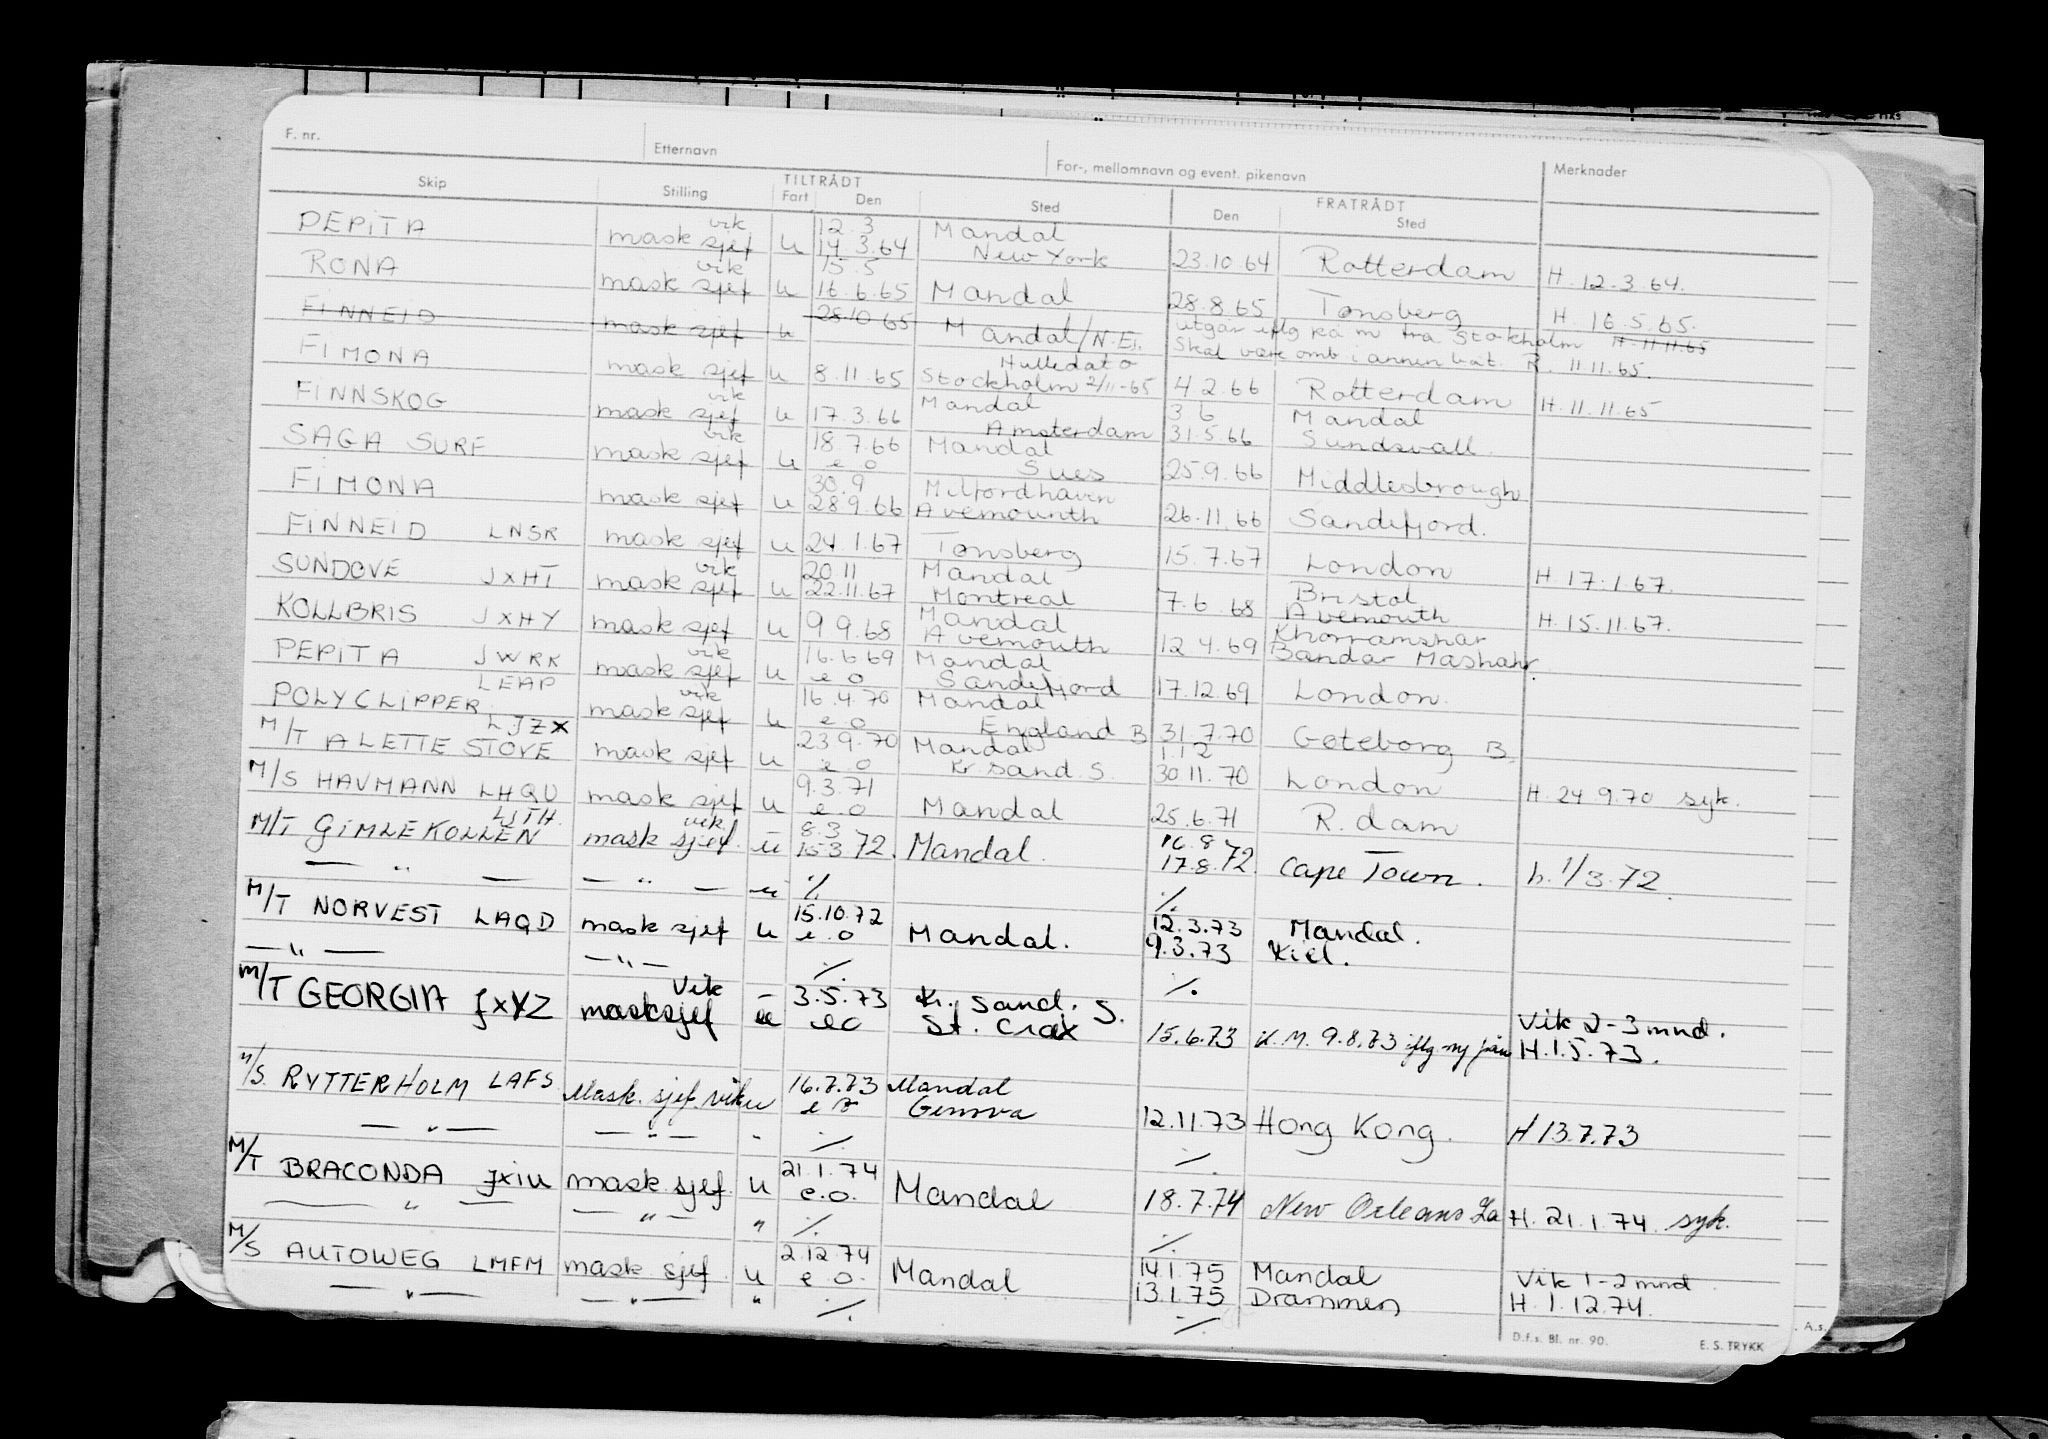 F. nr. Etternavn For-, mellomnavn og event. pikenavn Merknader
TILTRÅDT FRATRÅDT
Skip Stilling Fart Den Sted Den Sted
vik 12.3 Mandal
PEPITA mask sjef u 14.3.64 New York 23.10.64 Rotterdam H. 12.3.64.
vik 15.5
RONA mask sjef u 16.6.65 Mandal 28.8.65 Tønsberg H. 16.5.65.
FINNEID mask sjef u 28.10.65 Mandal/N.Ei. utgår iflg ka m fra Stockholm H. 11.11.65
Hulledato Skal være omb i annen båt. R. 11.11.65.
FIMONA mask sjef u 8.11.65 Stockholm 2/11-65 4.2.66 Rotterdam H. 11.11.65
vik Mandal 3.6 Mandal
FINNSKOG mask sjef u 17.3.66 Amsterdam 31.5.66 Sundsvall
vik 18.7.66 Mandal
SAGA SURF mask sjef u e o Sues 25.9.66 Middlesbrough
30.9 Milfordhaven
FIMONA mask sjef u 28.9.66 Avemounth 26.11.66 Sandefjord.
FINNEID LNSR mask sjef u 24.1.67 Tønsberg 15.7.67 London H. 17.1.67.
vik 20.11 Mandal Bristol
SUNDOVE JXHT mask sjef u 22.11.67 Montreal 7.6.68 Avemouth H. 15.11.67.
Mandal Khorramshar
KOLLBRIS JXHY mask sjef u 9.9.68 Avemouth 12.4.69 Bandar Mashahr.
vik 16.6.69 Mandal
PEPITA JWRK mask sjef u e o Sandefjord 17.12.69 London.
LEAP vik 16.4.70 Mandal
POLYCLIPPER mask sjef u e o England B 31.7.70 Gøteborg B.
LJZX 23.9.70 Mandal 1.12
M/T ALETTE STOVE mask sjef u e o Kr. sand. S. 30.11.70 London H. 24.9.70 syk.
9.3.71
M/S HAVMANN LHQU mask sjef u e o Mandal 25.6.71 R. dam
LJTH. vik 8.3 16.8
M/T GIMLEKOLLEN mask sjef. u 15.3.72. Mandal. 17.8.72. Cape Town. h. 1/3.72.
— " — — " — u ./. ./.
15.10.72 12.3.73 Mandal.
M/T NORVEST LAQD mask sjef u e o Mandal. 9.3.73 Kiel.
— " — — " — ./. ./.
Vik 3.5.73 Kr. Sand. S. Vik 2-3 mnd.
M/T GEORGIA JXYZ mask sjef u eo St. Croix 15.6.73 K.M. 9.8.73 iflg ny H. 1.5.73.
16.7.73 Mandal
M/S. RYTTERHOLM LAFS. Mask. sjef. vik u e o Genova 12.11.73 Hong Kong. H 13.7.73
— " — — " — " ./. ./.
21.1.74
M/T BRACONDA JXIU mask. sjef. u e.o. Mandal 18.7.74 New Orleans La H. 21.1.74. syk.
— " — — " — " ./. ./.
2.12.74 14.1.75 Mandal Vik 1-2 mnd.
M/S AUTOWEG LMFM mask sjef. u e o. Mandal 13.1.75 Drammen H. 1.12.74.
— " — — " — " ./. ./.
D.f.s. Bl. nr. 90. E. S. TRYKK
A.s.